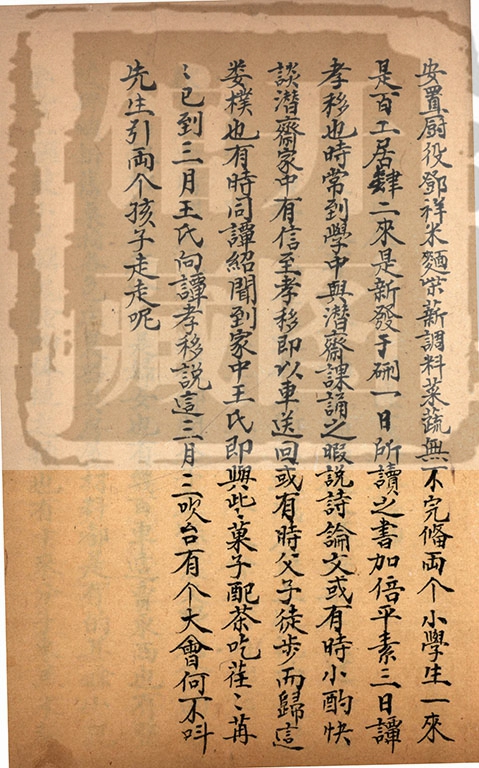 安置厨役鄧祥米麵柴薪調料菜蔬無不完俻両个小學生一來
是百工居肆二來是新發于硎一日所讀之書加倍平素三日譚
孝移也時常到學中與潛齋課誦之暇説詩論文或有時小酌快
談潛齋家中有信至孝移即以車送回或有時父子徒步而歸這
娄樸也有時同譚紹聞到家中王氏即與些〻菓子配茶吃荏〻苒
〻已到三月王氏向譚孝移説這三月三吹台有个大會何不叫
先生引両个孩子走走呢